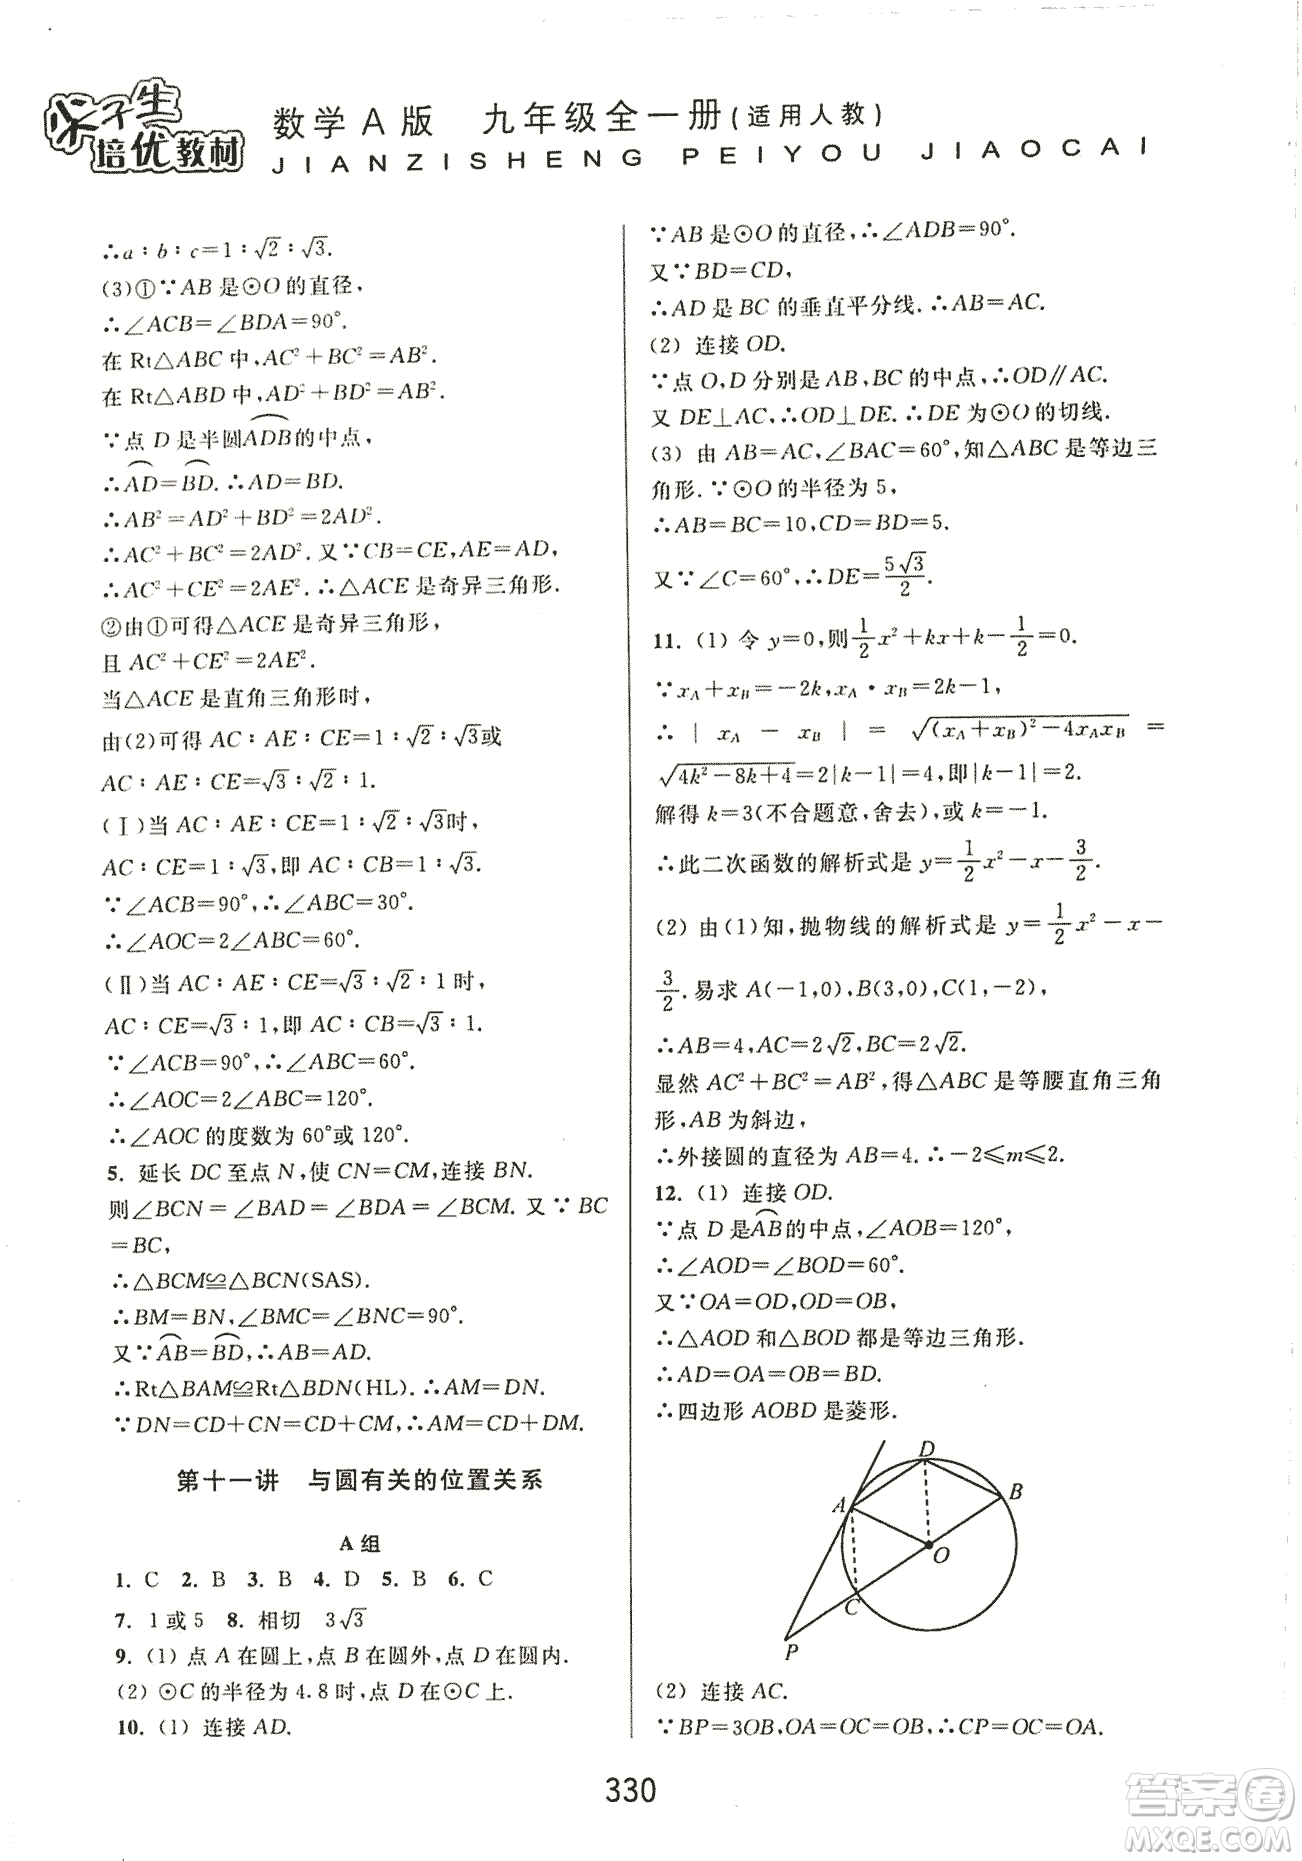 尖子生
培优教材
数学A版 九年级全一册(适用人教)
JIANZISHENG PEIYOU JIAOCAI
∴a∶b∶c=1∶√2∶√3.
(3)①∵AB是⊙O的直径,
∴∠ACB=∠BDA=90°.
在Rt△ABC中,AC²+BC²=AB².
在Rt△ABD中,AD²+BD²=AB².
∵点D是半圆ADB的中点,
∴AD=BD.∴AD=BD.
∴AB²=AD²+BD²=2AD².
∴AC²+BC²=2AD².又∵CB=CE,AE=AD,
∴AC²+CE²=2AE².∴△ACE是奇异三角形.
②由①可得△ACE是奇异三角形,
且AC²+CE²=2AE².
当△ACE是直角三角形时,
由(2)可得AC∶AE∶CE=1∶√2∶√3或
AC∶AE∶CE=√3∶√2∶1.
(Ⅰ)当AC∶AE∶CE=1∶√2∶√3时,
AC∶CE=1∶√3,即AC∶CB=1∶√3.
∵∠ACB=90°,∴∠ABC=30°.
∴∠AOC=2∠ABC=60°.
(Ⅱ)当AC∶AE∶CE=√3∶√2∶1时,
AC∶CE=√3∶1,即AC∶CB=√3∶1.
∵∠ACB=90°,∴∠ABC=60°.
∴∠AOC=2∠ABC=120°.
∴∠AOC的度数为60°或120°.
5. 延长DC至点N,使CN=CM,连接BN.
则∠BCN=∠BAD=∠BDA=∠BCM. 又∵BC
=BC,
∴△BCM≌△BCN(SAS).
∴BM=BN,∠BMC=∠BNC=90°.
又∵AB=BD,∴AB=AD.
∴Rt△BAM≌Rt△BDN(HL).∴AM=DN.
∵DN=CD+CN=CD+CM,∴AM=CD+DM.
第十一讲 与圆有关的位置关系
A组
1. C 2. B 3. B 4. D 5. B 6. C
7. 1或5 8. 相切 3√3
9. (1) 点A在圆上,点B在圆外,点D在圆内.
(2) ⊙C的半径为4.8时,点D在⊙C上.
10. (1) 连接AD.
∵AB是⊙O的直径,∴∠ADB=90°.
又∵BD=CD,
∴AD是BC的垂直平分线.∴AB=AC.
(2) 连接OD.
∵点O,D分别是AB,BC的中点,∴OD∥AC.
又DE⊥AC,∴OD⊥DE.∴DE为⊙O的切线.
(3) 由AB=AC,∠BAC=60°,知△ABC是等边三
角形.∵⊙O的半径为5,
∴AB=BC=10,CD=BD=5.
又∵∠C=60°,∴DE=5√3/2.
11. (1) 令y=0,则1/2x²+kx+k-1/2=0.
∵x_A+x_B=-2k,x_A·x_B=2k-1,
∴|x_A-x_B|=√((x_A+x_B)²-4x_Ax_B)=
√(4k²-8k+4)=2|k-1|=4,即|k-1|=2.
解得k=3(不合题意,舍去),或k=-1.
∴此二次函数的解析式是y=1/2x²-x-3/2.
(2) 由(1)知,抛物线的解析式是y=1/2x²-x-
3/2.易求A(-1,0),B(3,0),C(1,-2),
∴AB=4,AC=2√2,BC=2√2.
显然AC²+BC²=AB²,得△ABC是等腰直角三角
形,AB为斜边,
∴外接圆的直径为AB=4.∴-2≤m≤2.
12. (1) 连接OD.
∵点D是AB的中点,∠AOB=120°,
∴∠AOD=∠BOD=60°.
又∵OA=OD,OD=OB,
∴△AOD和△BOD都是等边三角形.
∴AD=OA=OB=BD.
∴四边形AOBD是菱形.
D
A
B
O
C
P
(2) 连接AC.
∵BP=3OB,OA=OC=OB,∴CP=OC=OA.
330
答案圈
MXQE.COM